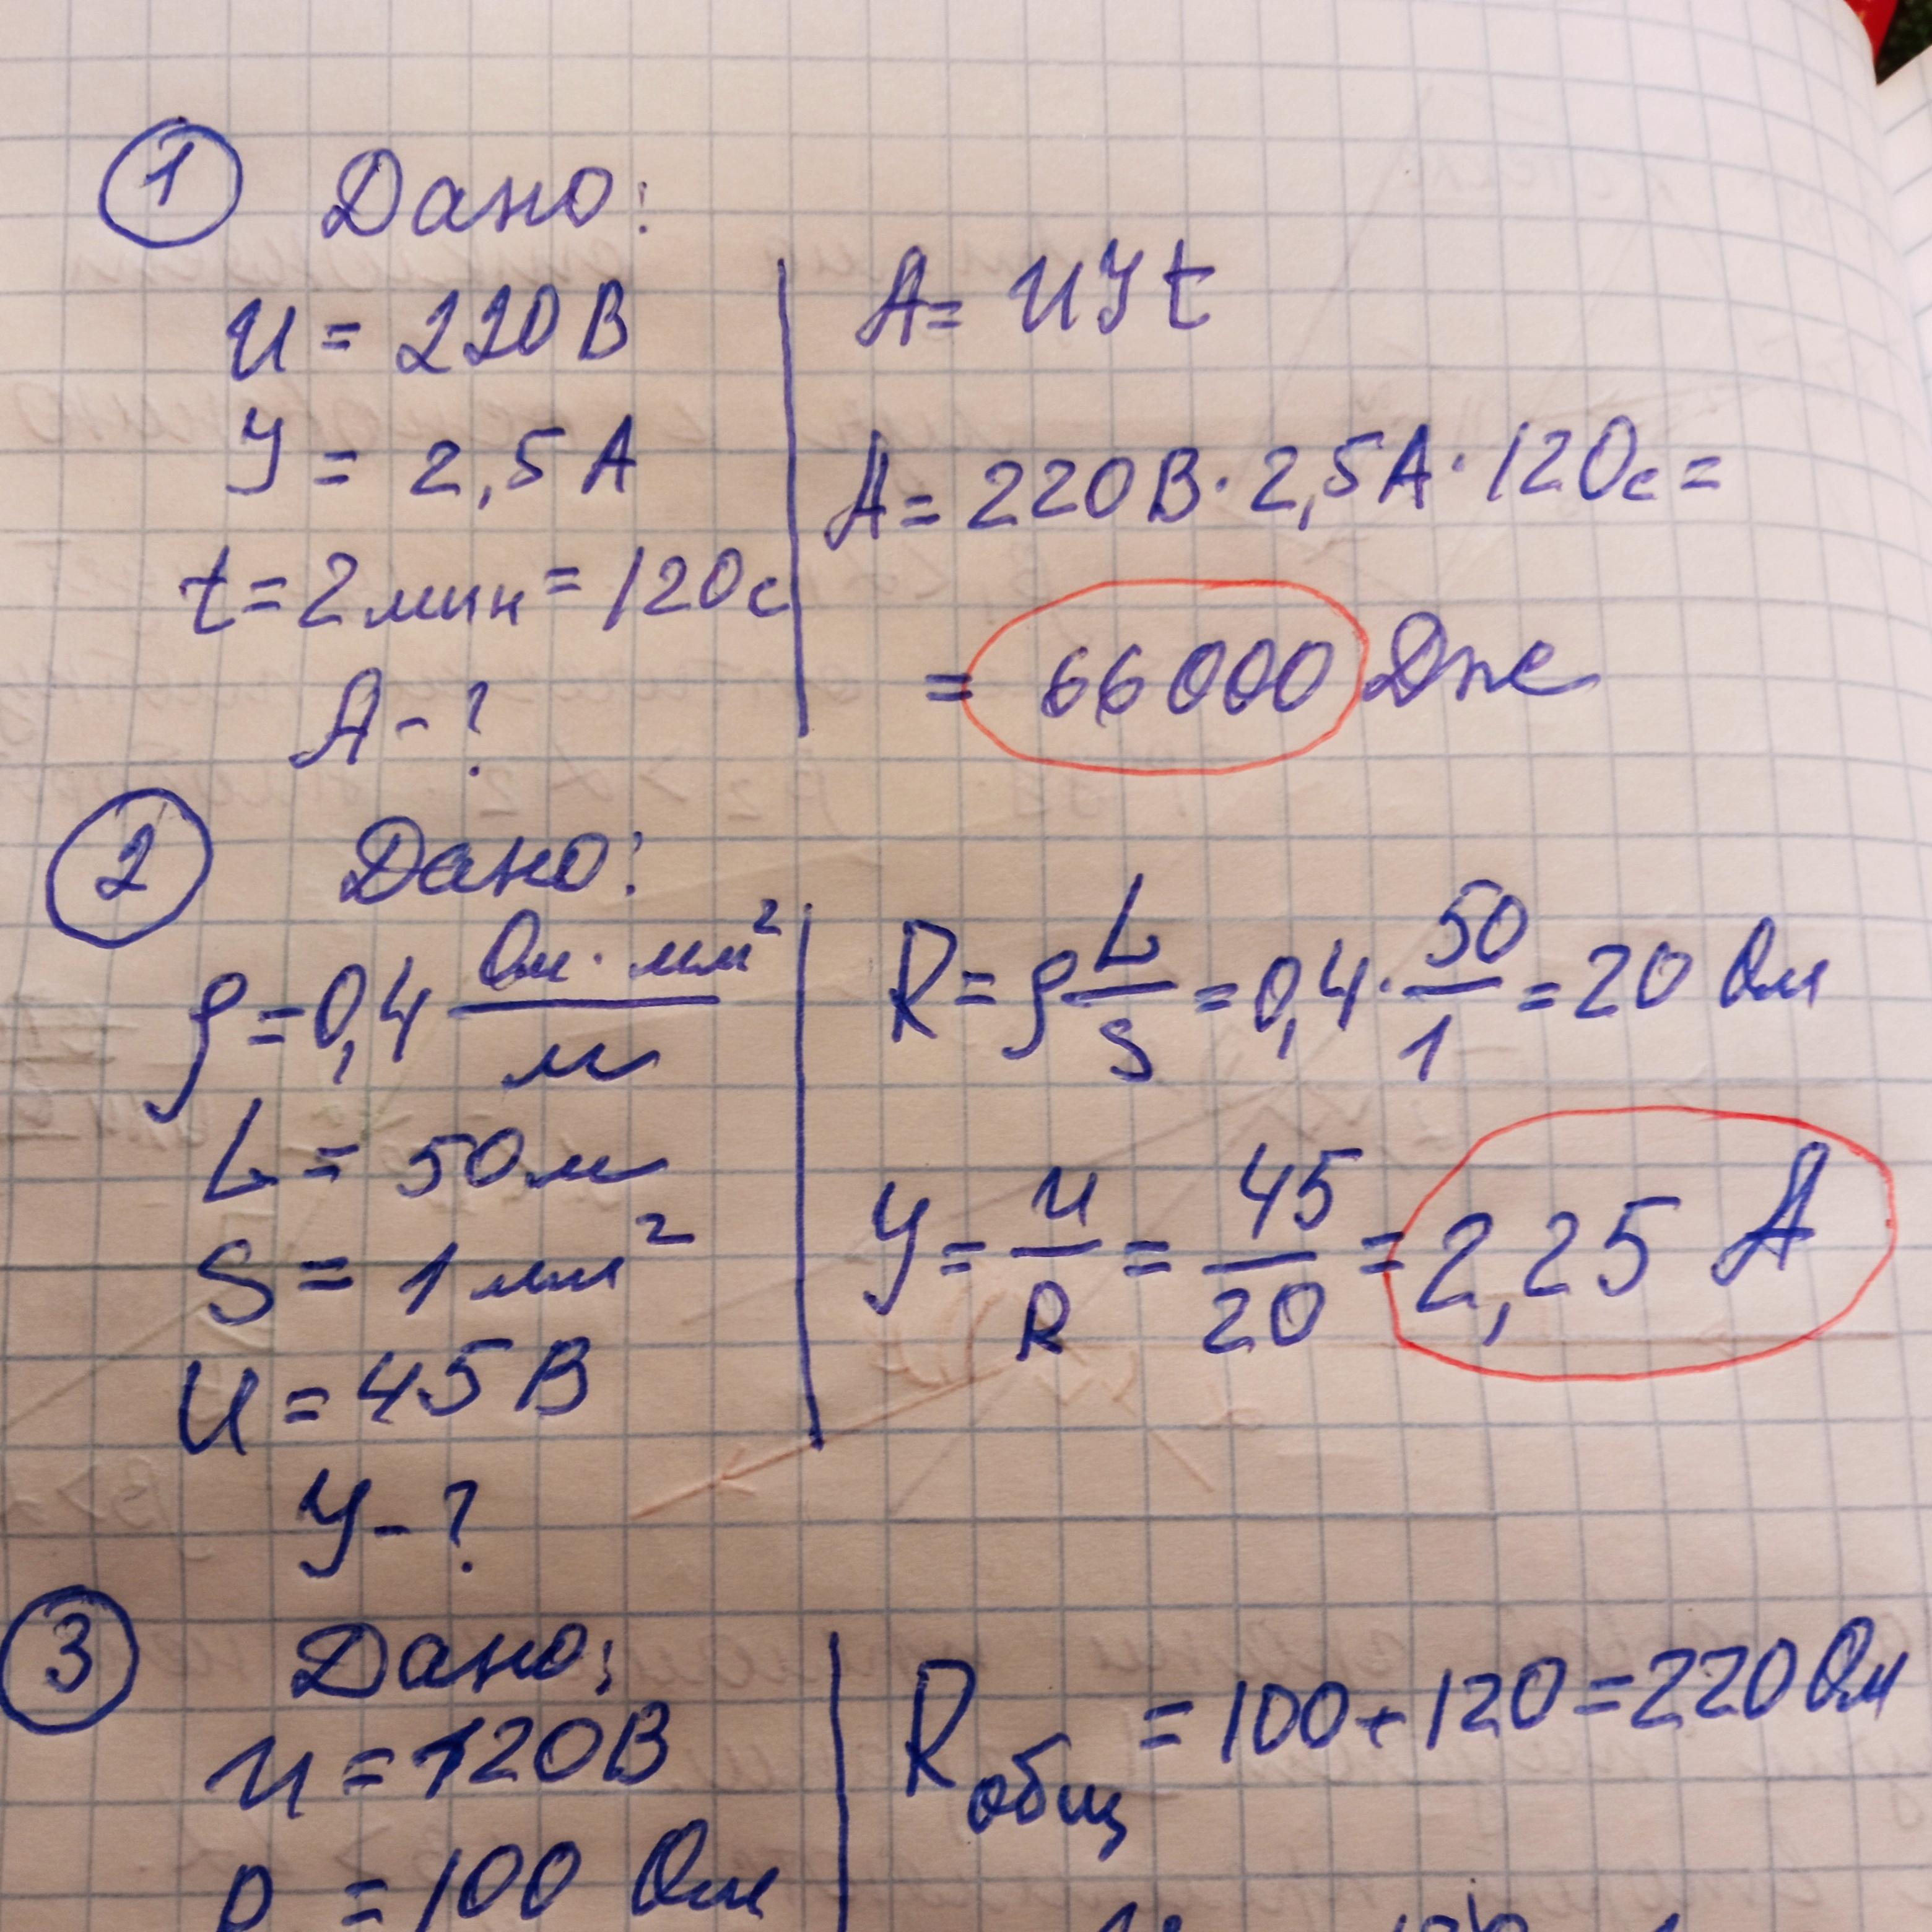 1 Дано:
U = 220 В
I = 2,5 А
t = 2 мин = 120 с
A - ?
A = UIt
A = 220 В · 2,5 А · 120 с =
= 66 000 Дж
2 Дано:
ρ = 0,4 Ом · мм² / м
L = 50 м
S = 1 мм²
U = 45 В
I - ?
R = ρ L/S = 0,4 · 50/1 = 20 Ом
I = U/R = 45/20 = 2,25 А
3 Дано:
U = 120 В
R = 100 Ом
Rобщ = 100 + 120 = 220 Ом